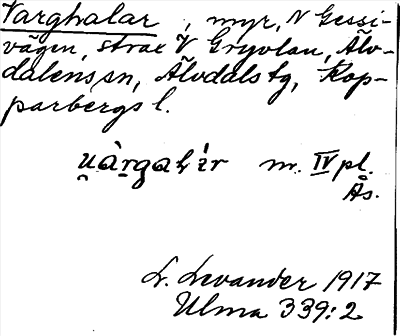 Varghalar, myr, N Gessi-
vägen, strax V Gryvlan, Älv-
dalens sn, Älvdals tg, Kop-
parbergs l.
u̯àrgaḷìr m. IV pl.
Ås.
L. Levander 1917
Ulma 339:2